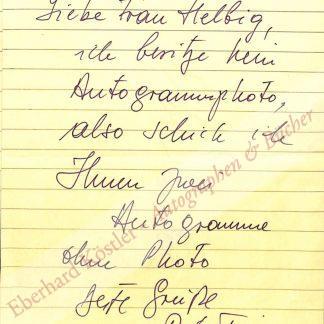 Liebe Frau Helbig,
ich besitze kein
Autogrammphoto,
also schick ich
Ihnen zwei
Autogramme
ohne Photo
Beste Grüße
Eberhard Köstler - Autographen & Bücher